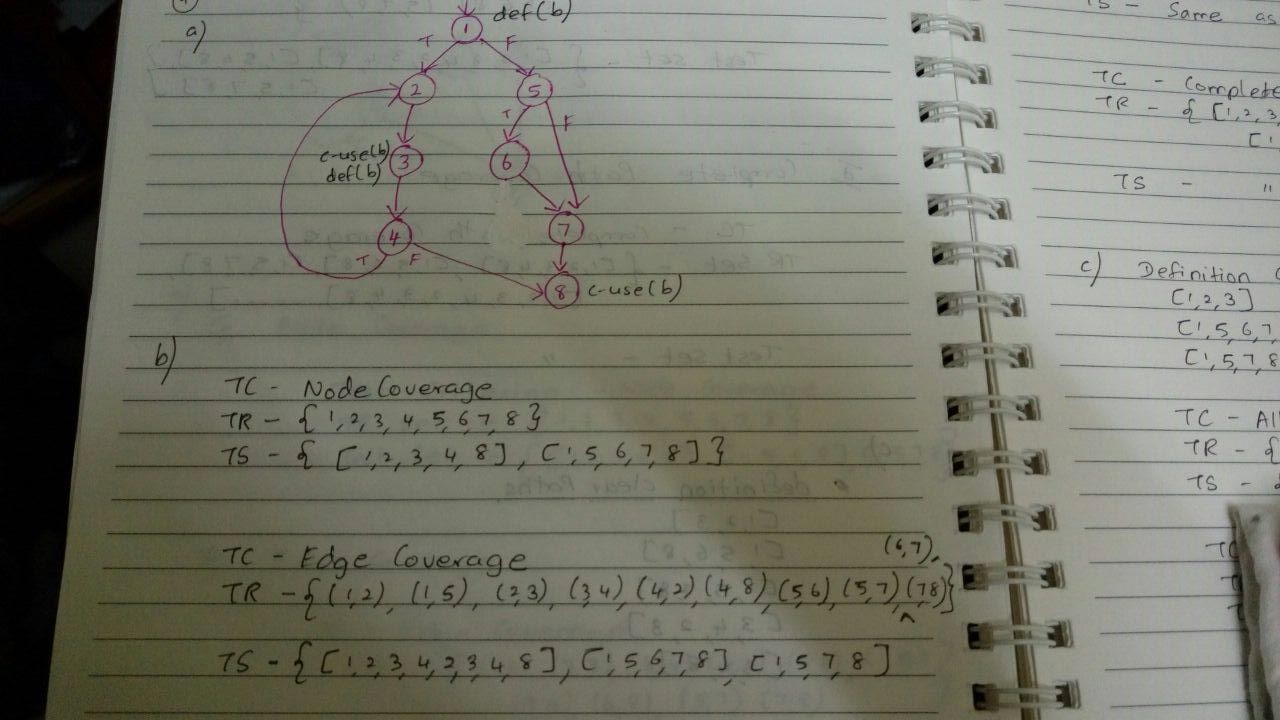 a)
def(b)
1
T F
2 5
T F
c-use(b)
def(b) 3 6
4 7
T F
8 c-use(b)
b)
TC - Node Coverage
TR - { 1,2,3, 4, 5,6,7, 8 }
TS - { [1,2,3,4,8] , [1,5,6,7,8] }
TC - Edge Coverage
(6,7),
TR - { (1,2) , (1,5) , (2,3) , (3,4) , (4,2) (4,8) , (5,6) , (5,7) , (7,8) }
TS - { [1 2 3 4 2 3 4 8] , [1 5 6 7 8] , [1 5 7 8 ]
TS - Same as
TC - Complete
TR - { [1,2,3,
[1
TS - "
c) Definition
[1,2,3]
[1,5,6,7,
[1,5,7,8
TC - Al
TR - {
TS -
TC